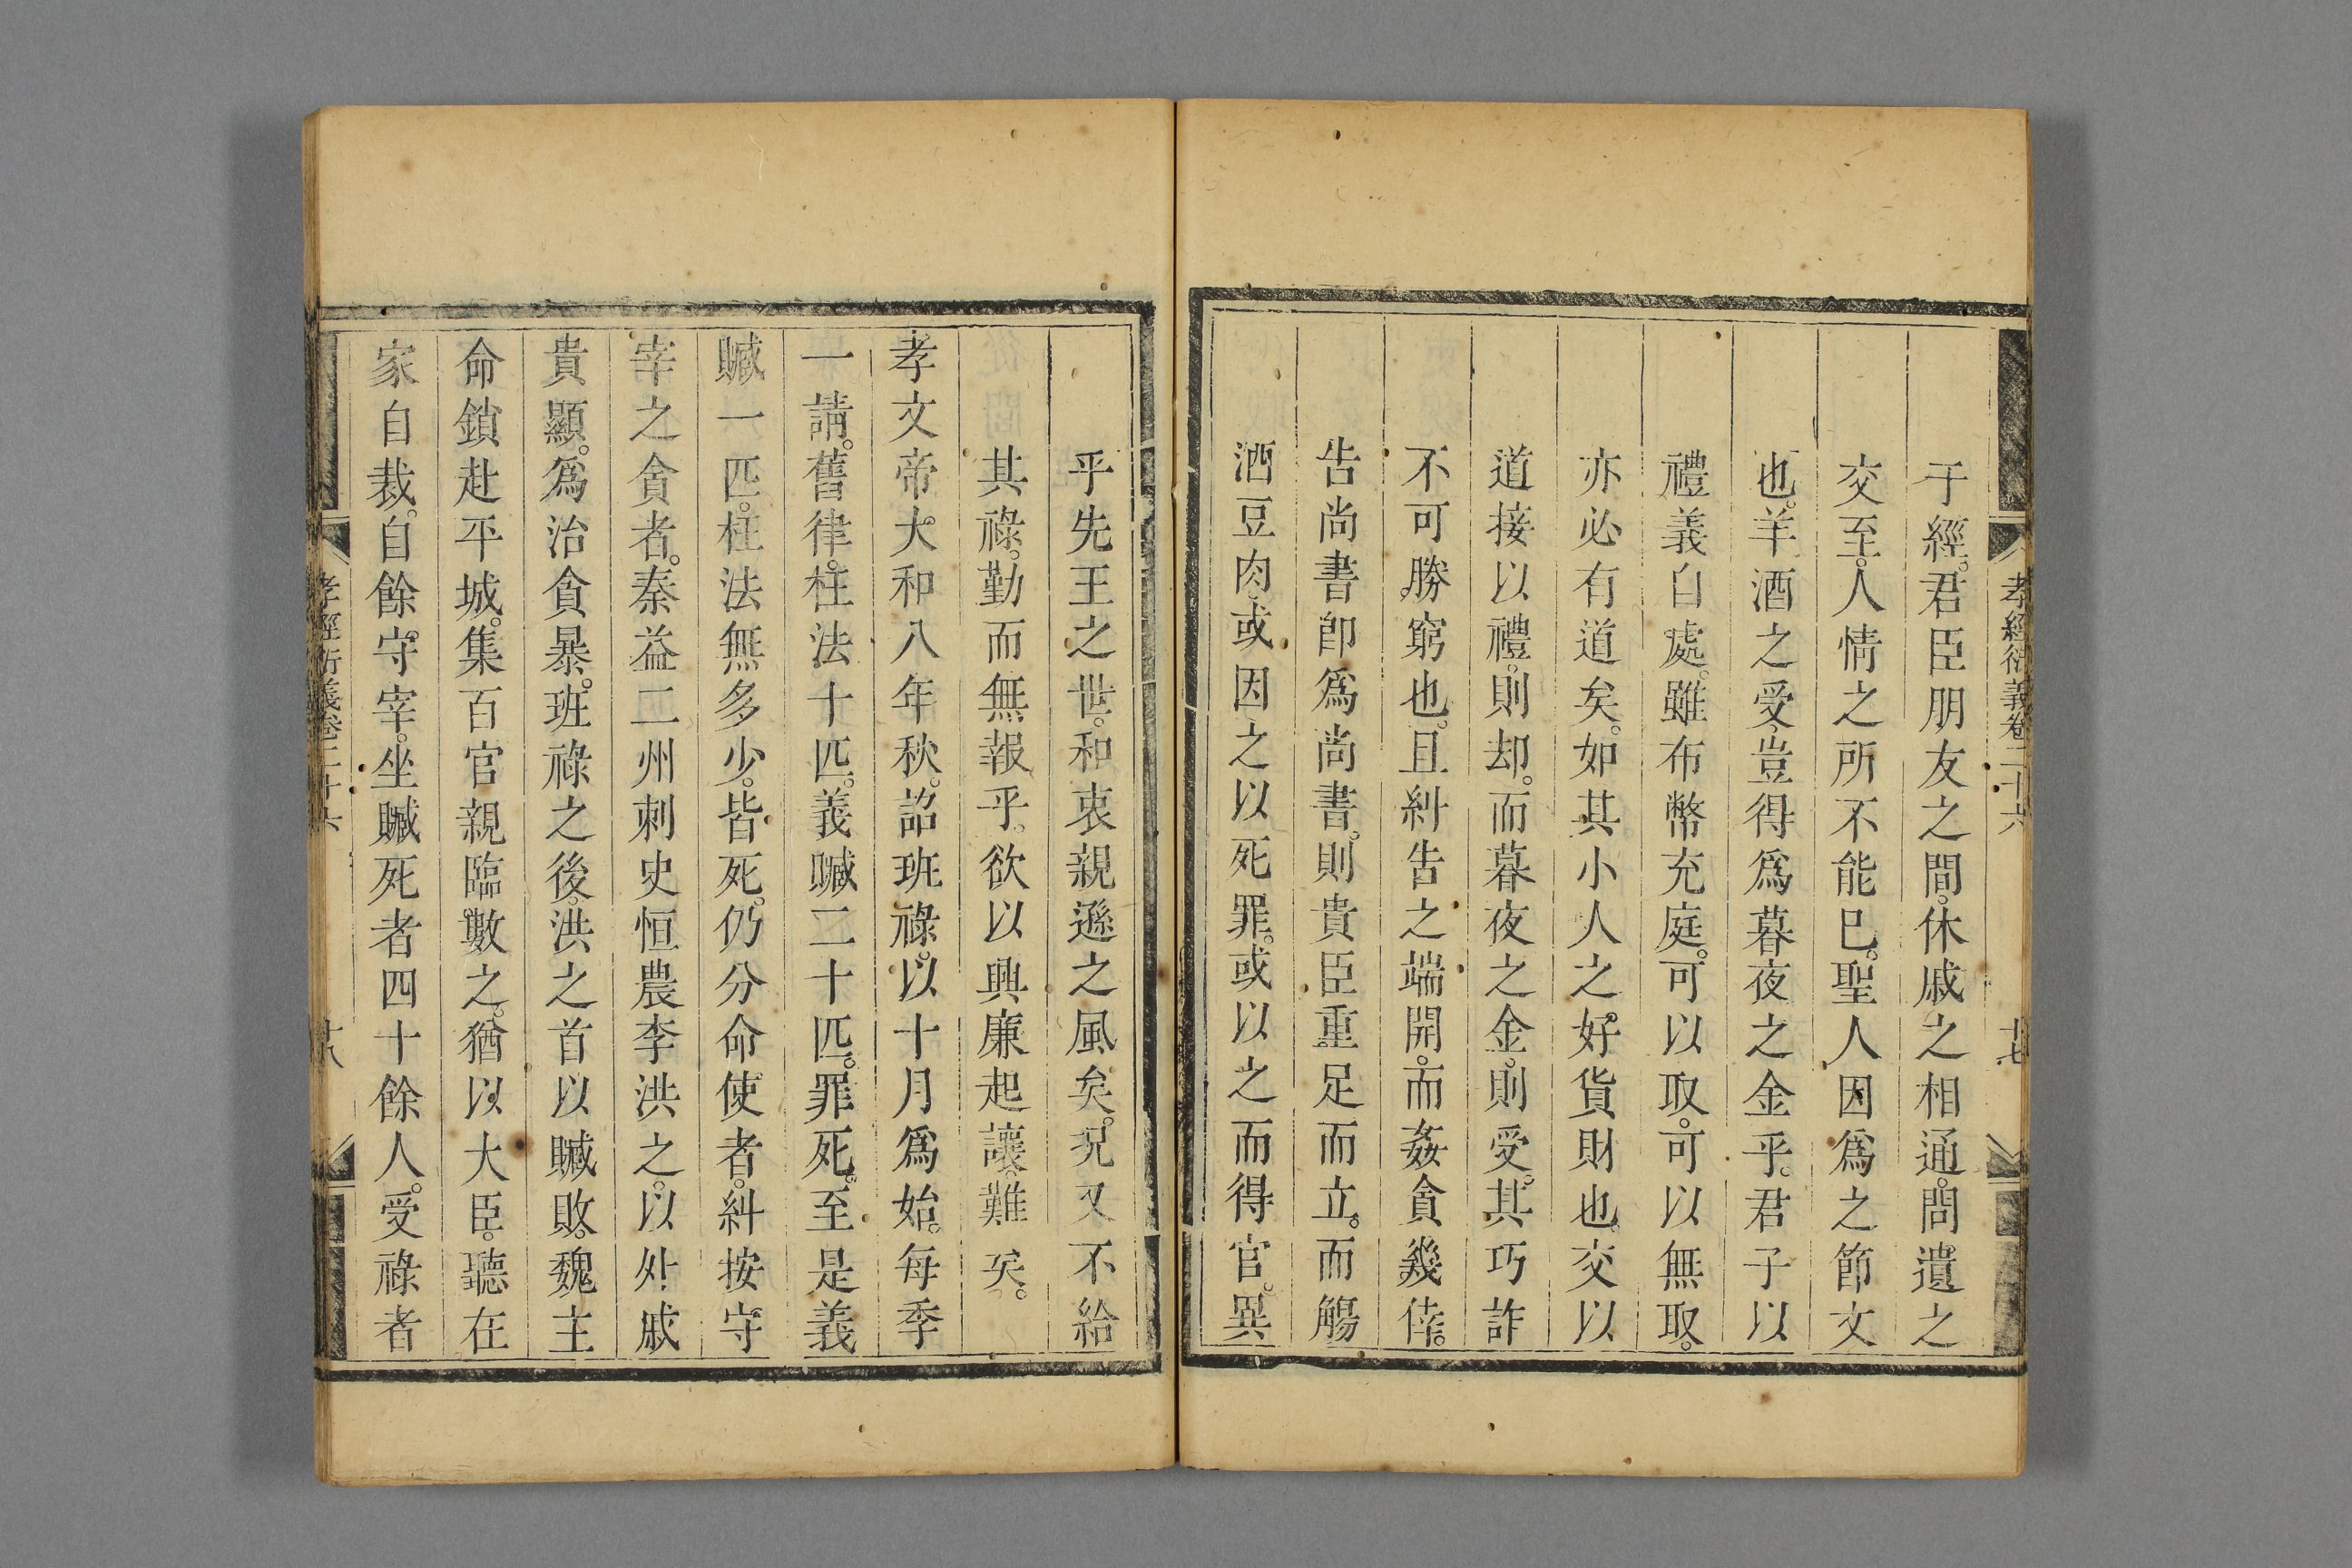 孝經衍義卷二十六
十七
于經。君臣朋友之間。休戚之相通。問遺之
交至。人情之所不能已。聖人因爲之節文
也。羊酒之受。豈得爲暮夜之金乎。君子以
禮義自處。雖布幣充庭。可以取。可以無取。
亦必有道矣。如其小人之好貨財也。交以
道接以禮。則却。而暮夜之金。則受。其巧詐
不可勝窮也。且糾告之端開。而姦貪幾倖。
告尚書卽爲尚書。則貴臣重足而立。而觴
酒豆肉。或因之以死罪。或以之而得官。異
乎先王之世。和衷親遜之風矣。況又不給
其祿。勤而無報乎。欲以興廉起讓。難矣。
孝文帝大和八年秋。詔班祿。以十月爲始。每季
一請。舊律。枉法十匹。義贓二十匹。罪死。至是義
贓一匹。枉法無多少。皆死。仍分命使者。糾按守
宰之貪者。秦益二州刺史恒農李洪之。以外戚
貴顯。爲治貪暴。班祿之後。洪之首以贓敗。魏主
命鎖赴平城。集百官親臨數之。猶以大臣。聽在
家自裁。自餘守宰。坐贓死者四十餘人。受祿者
孝經衍義卷二十六
十八